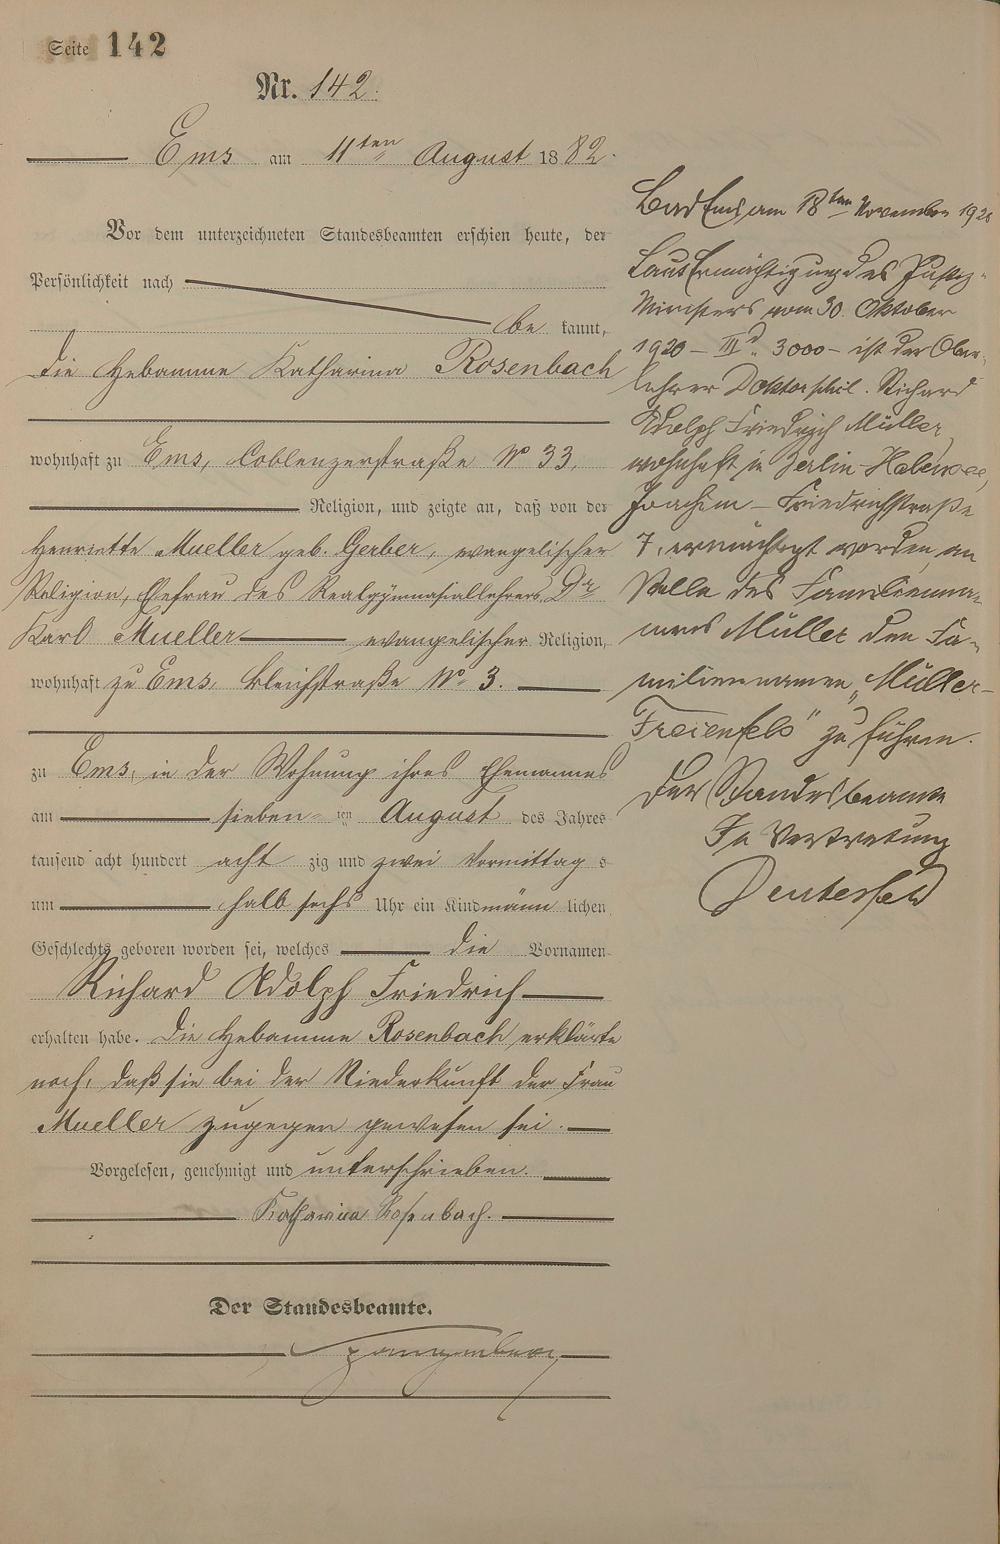 Seite 142
Nr. 142.
Ems am 11ten August 1882.
Vor dem unterzeichneten Standesbeamten erschien heute, der
Persönlichkeit nach
be kannt,
die Hebamme Katharina Rosenbach
wohnhaft zu Ems, Coblenzerstraße No 33,
Religion, und zeigte an, daß von der
Henriette Mueller geb. Gerber, evangelischer
Religion, Ehefrau des Realgymnasiallehrers Dr.
Karl Mueller evangelischer Religion,
wohnhaft zu Ems, Bleichstraße No 3.
zu Ems, in der Wohnung ihres Ehemannes
am sieben ten August des Jahres
tausend acht hundert acht zig und zwei Vormittag s
um halb sechs Uhr ein Kind männ lichen
Geschlechts geboren worden sei, welches die Vornamen
Richard Adolph Friedrich
erhalten habe. Die Hebamme Rosenbach erklärte
noch, daß sie bei der Niederkunft der Frau
Mueller zugegen gewesen sei.
Vorgelesen, genehmigt und unterschrieben.
Katharina Rosenbach.
Der Standesbeamte.
Bad Ems, am 18ten November 192
Laut Ermächtigung des Justiz-
Ministers vom 30. Oktober
1920 – III d. 3000 – ist der Ober-
lehrer Doktor phil. Richard
Adolph Friedrich Müller,
wohnhaft in Berlin-Halensee,
Joachim-Friedrichstraße
7, ermächtigt worden, an
Stelle des Familienna-
mens Müller den Fa-
miliennamen „Müller-
Freienfels" zu führen.
Der Standesbeamte
In Vertretung